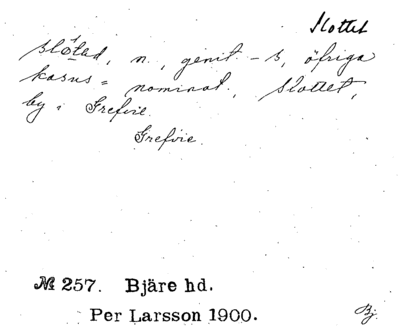 Slottet
slo̱tad, n., genit. -s, öfriga
kasus = nominat., Slottet,
by i Grefvie.
Grefvie.
№ 257. Bjäre hd.
Per Larsson 1900.
Bj.